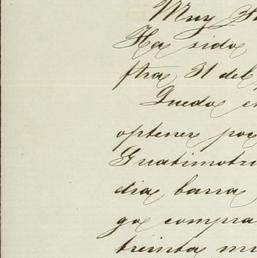 Muy
Ha sido
ftha, 31 del
Quedo
optener po
Guatimotzi
dia barra
go compra
treinta m